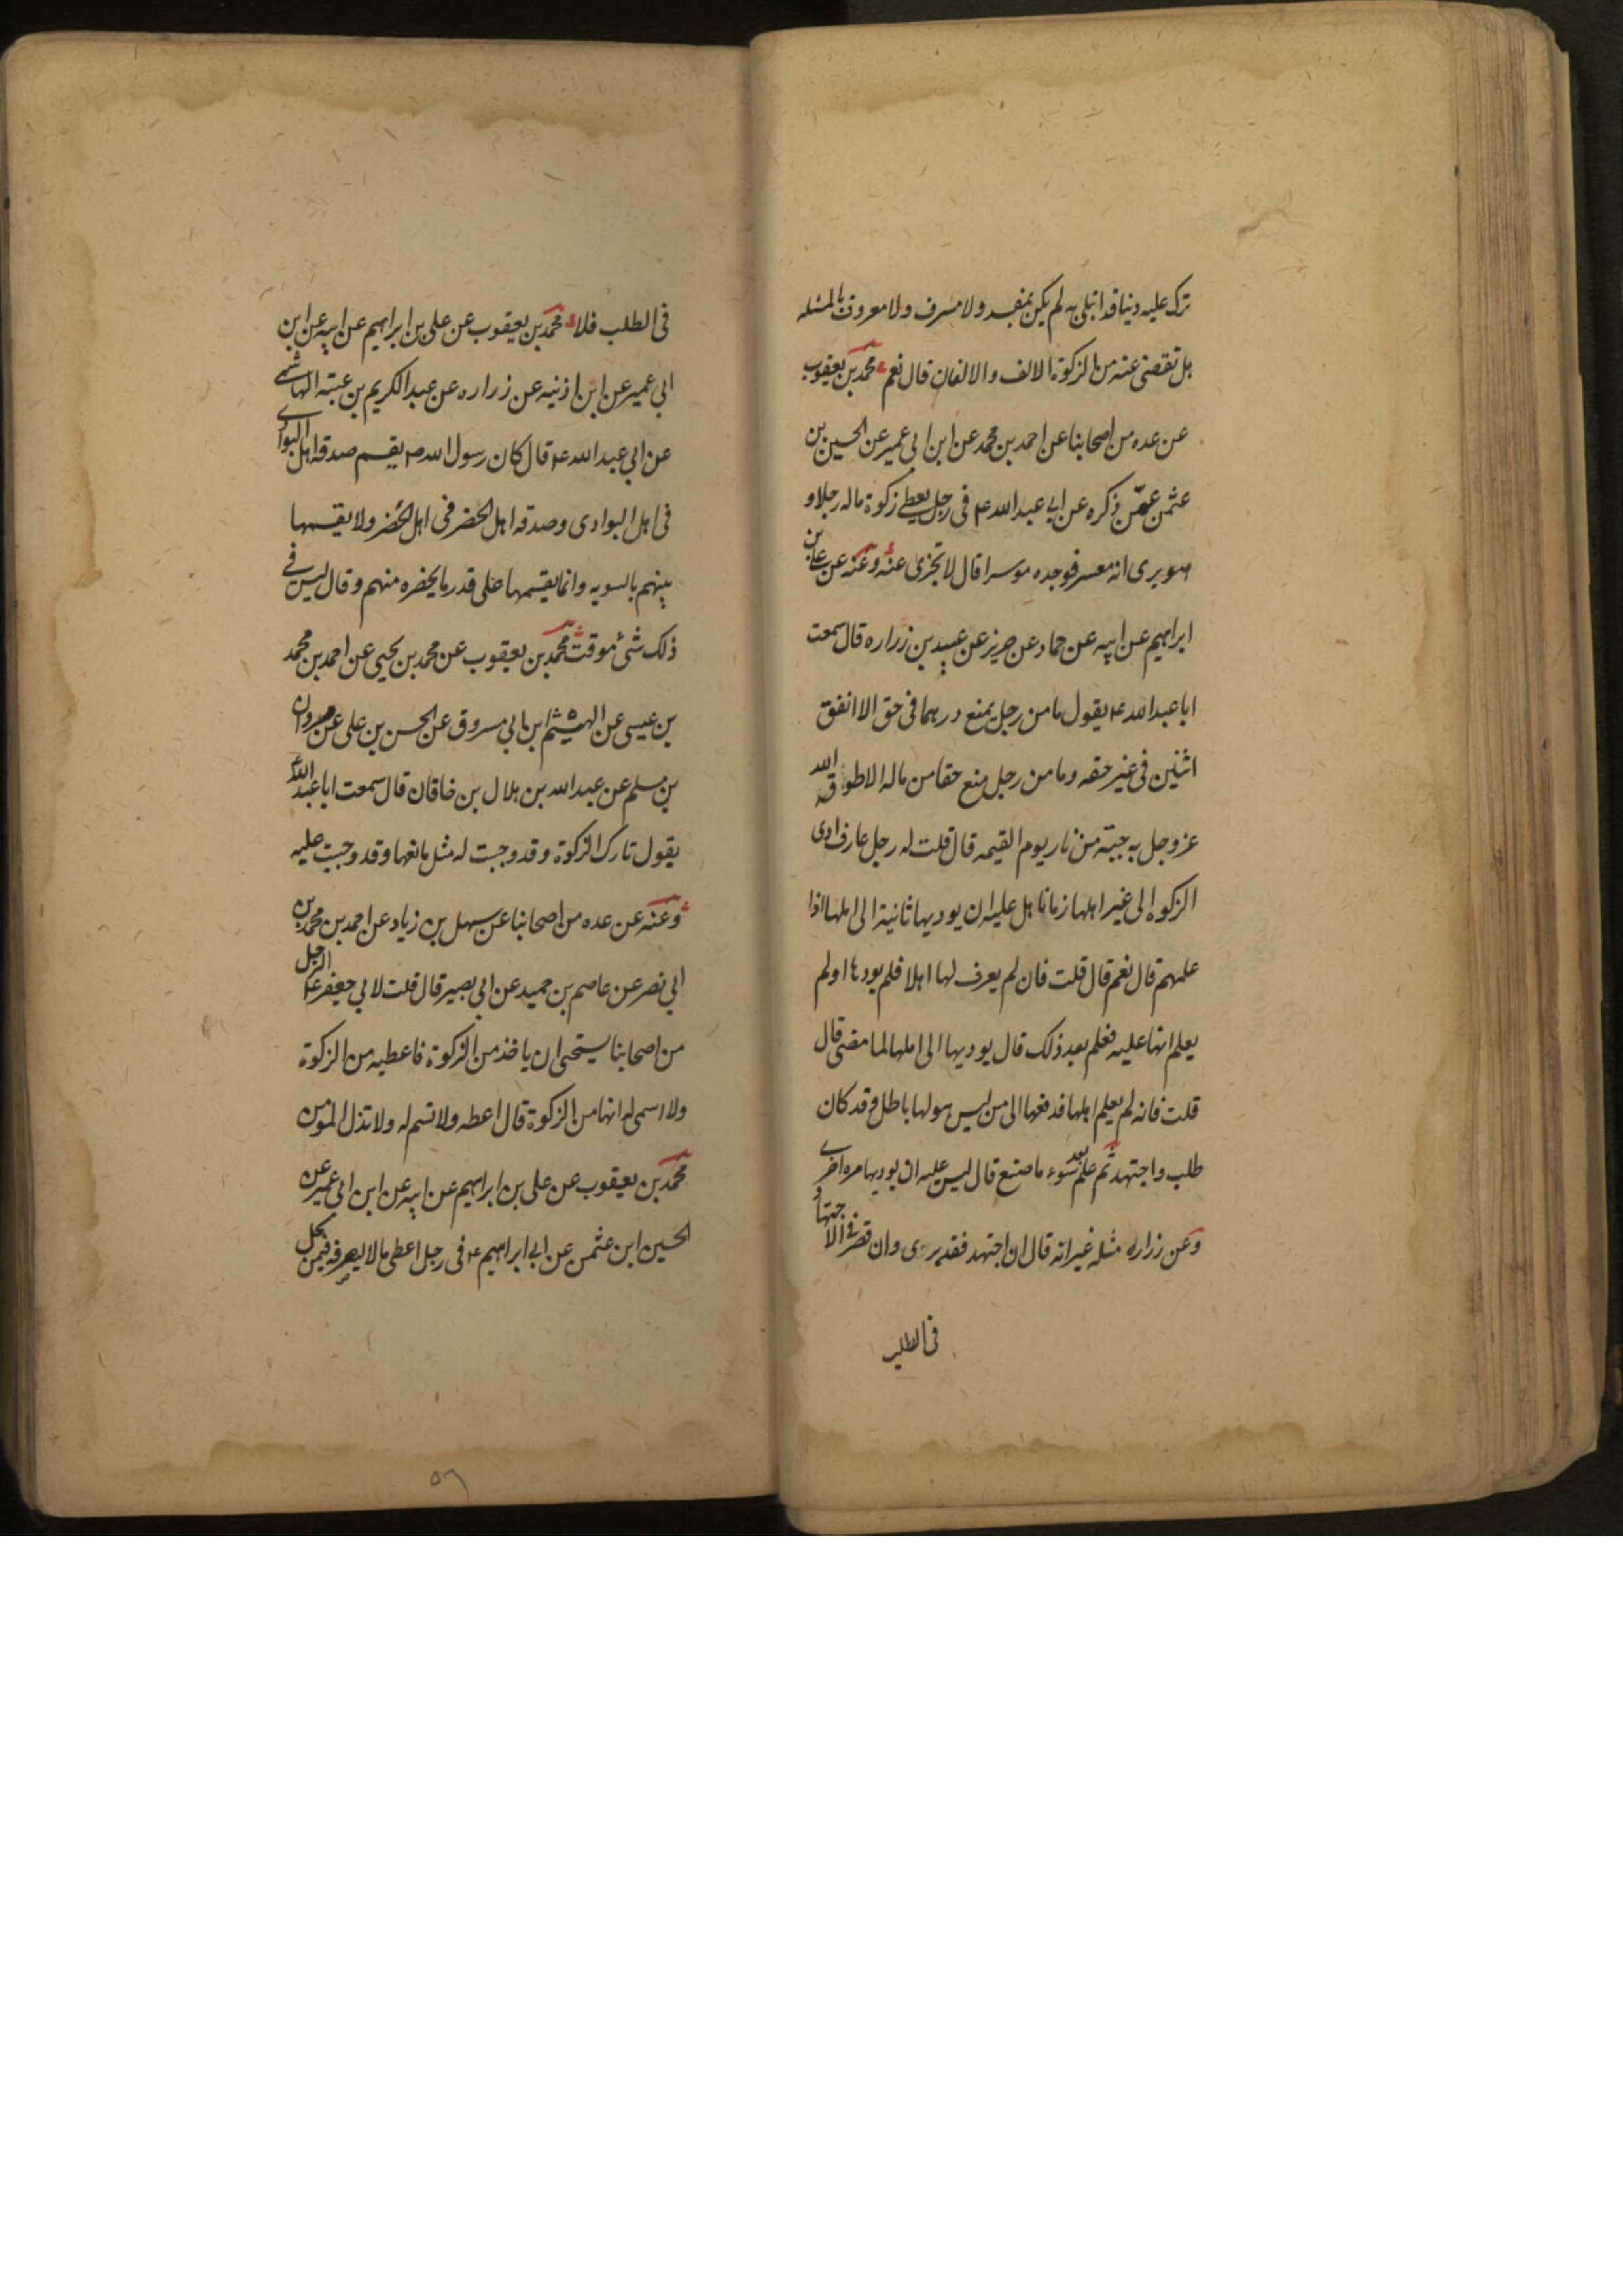 ترك عليه دينا قد ابتلى به لم يكن بمفسد ولا مسرف ولا معروف بالمسئله
هل تقضى عنه من الزكوة الالف والالفان قال نعم محمد بن يعقوب
عن عده من اصحابنا عن احمد بن محمد عن ابن ابى عمير عن الحسين بن
عثمن عمّن ذكره عن ابى عبد الله ع فى رجل يعطى زكوة ماله رجلا و
هو يرى انه معسر فوجده موسرا قال لا تجزى عنه وعنه عن على بن
ابراهيم عن ابيه عن حماد عن حريز عن عبيد بن زراره قال سمعت
ابا عبد الله ع يقول ما من رجل يمنع درهما فى حق الا انفق
اثنين فى غير حقه وما من رجل منع حقا من ماله الا طوقه الله
عز وجل به حيّة من نار يوم القيمه قال قلت له رجل عارف ادى
الزكوة الى غير اهلها زمانا هل عليه ان يوديها ثانية الى اهلها اذا
علمهم قال نعم قال قلت فان لم يعرف لها اهلا فلم يودها او لم
يعلم انها عليه فعلم بعد ذلك قال يوديها الى اهلها لما مضى قال
قلت فانه لم يعلم اهلها فدفعها الى من ليس هو لها باهل وقد كان
طلب واجتهد ثم علم بعد سوء ما صنع قال ليس عليه ان يوديها مره اخرى
وعن زراره مثله غير انه قال ان اجتهد فقد برى وان قصر فى الاجتهاد
فى الطلب
فى الطلب فلا محمد بن يعقوب عن على بن ابراهيم عن ابيه عن ابن
ابى عمير عن ابن اذينه عن زراره عن عبد الكريم بن عتبه الهاشمى
عن ابى عبد الله ع قال كان رسول الله ص يقسم صدقه اهل البوادى
فى اهل البوادى وصدقه اهل الحضر فى اهل الحضر ولا يقسمها
بينهم بالسويه وانما يقسمها على قدر ما يحضره منهم وقال ليس فى
ذلك شئ موقت محمد بن يعقوب عن محمد بن يحيى عن احمد بن محمد
بن عيسى عن الهيثم ابن ابى مسروق عن الحسن بن على عن مروان
بن مسلم عن عبد الله بن هلال بن خاقان قال سمعت ابا عبد الله ع
يقول تارك الزكوة وقد وجبت له مثل مانعها وقد وجبت عليه
وعنه عن عده من اصحابنا عن سهل بن زياد عن احمد بن محمد بن
ابى نصر عن عاصم بن حميد عن ابى بصير قال قلت لابى جعفر ع الرجل
من اصحابنا يستحى ان ياخذ من الزكوة فاعطيه من الزكوة
ولا اسمى له انها من الزكوة قال اعطه ولا تسم له ولا تذل المومن
محمد بن يعقوب عن على بن ابراهيم عن ابيه عن ابن ابى عمير عن
الحسين ابن عثمن عن ابى ابراهيم ع فى رجل اعطى مالا يفرقه فيمن يحل
٥٦